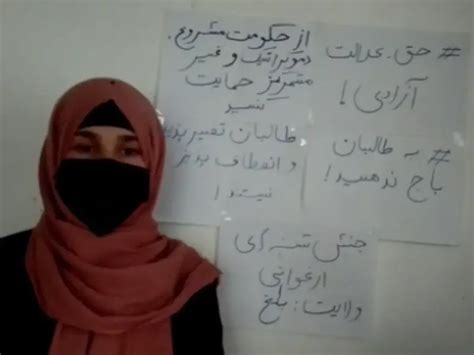 از حکومت مشروع،
دموکراتیک و غیر
متمرکز حمایت
کنید
طالبان تغییر پذیر
و انعطاف پذیر
نیستند!
# حق. عدالت
آزادی!
# به طالبان
باج ندهید!
جنبش شنبه‌های
ارغوانی
ولایت: بلخ